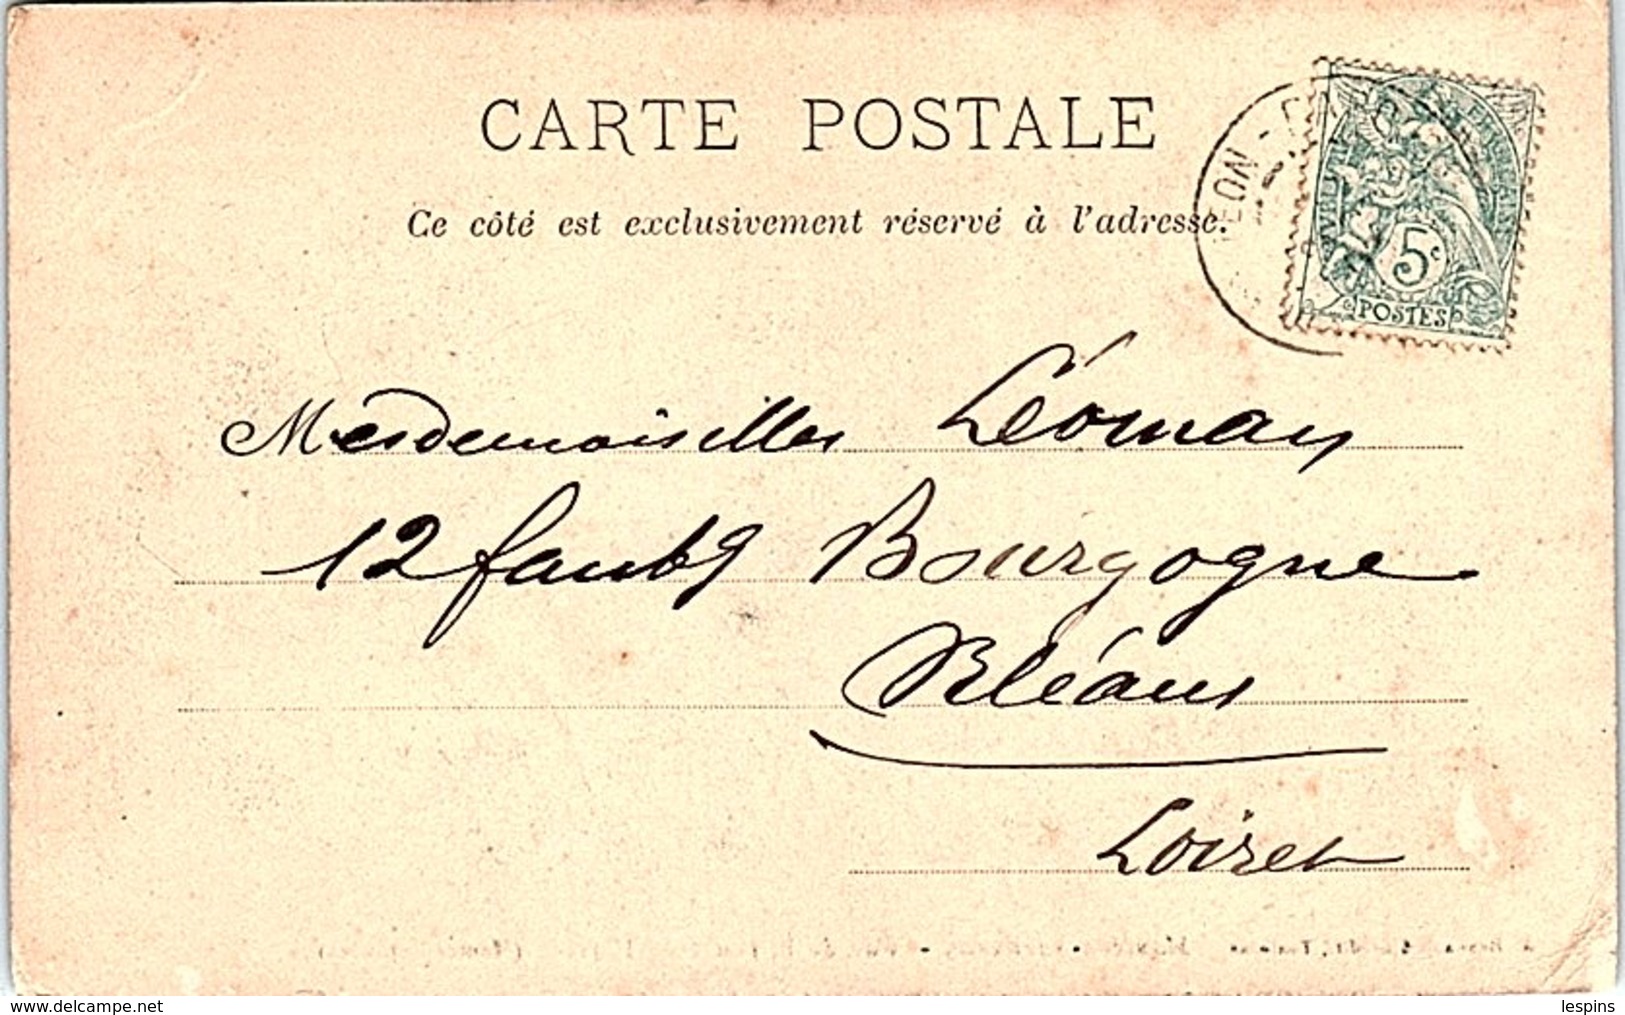 CARTE POSTALE
Ce côté est exclusivement réservé à l'adresse.
5c
POSTES
Mesdemoiselles Léoman
12 faubg Bourgogne
Orléans
Loiret
www.delcampe.net
lespins